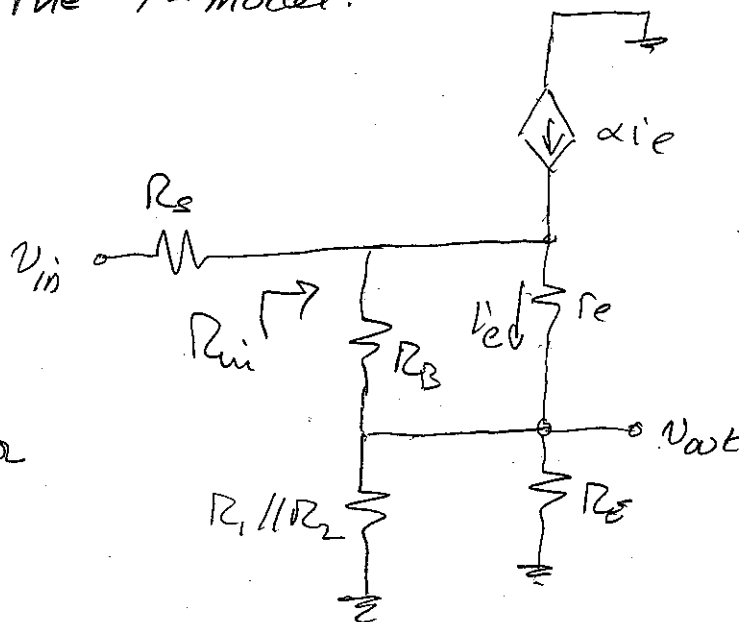 The T-model.
αie
Rs
vin
Rin
RB
ie
re
vout
R1//R2
RE